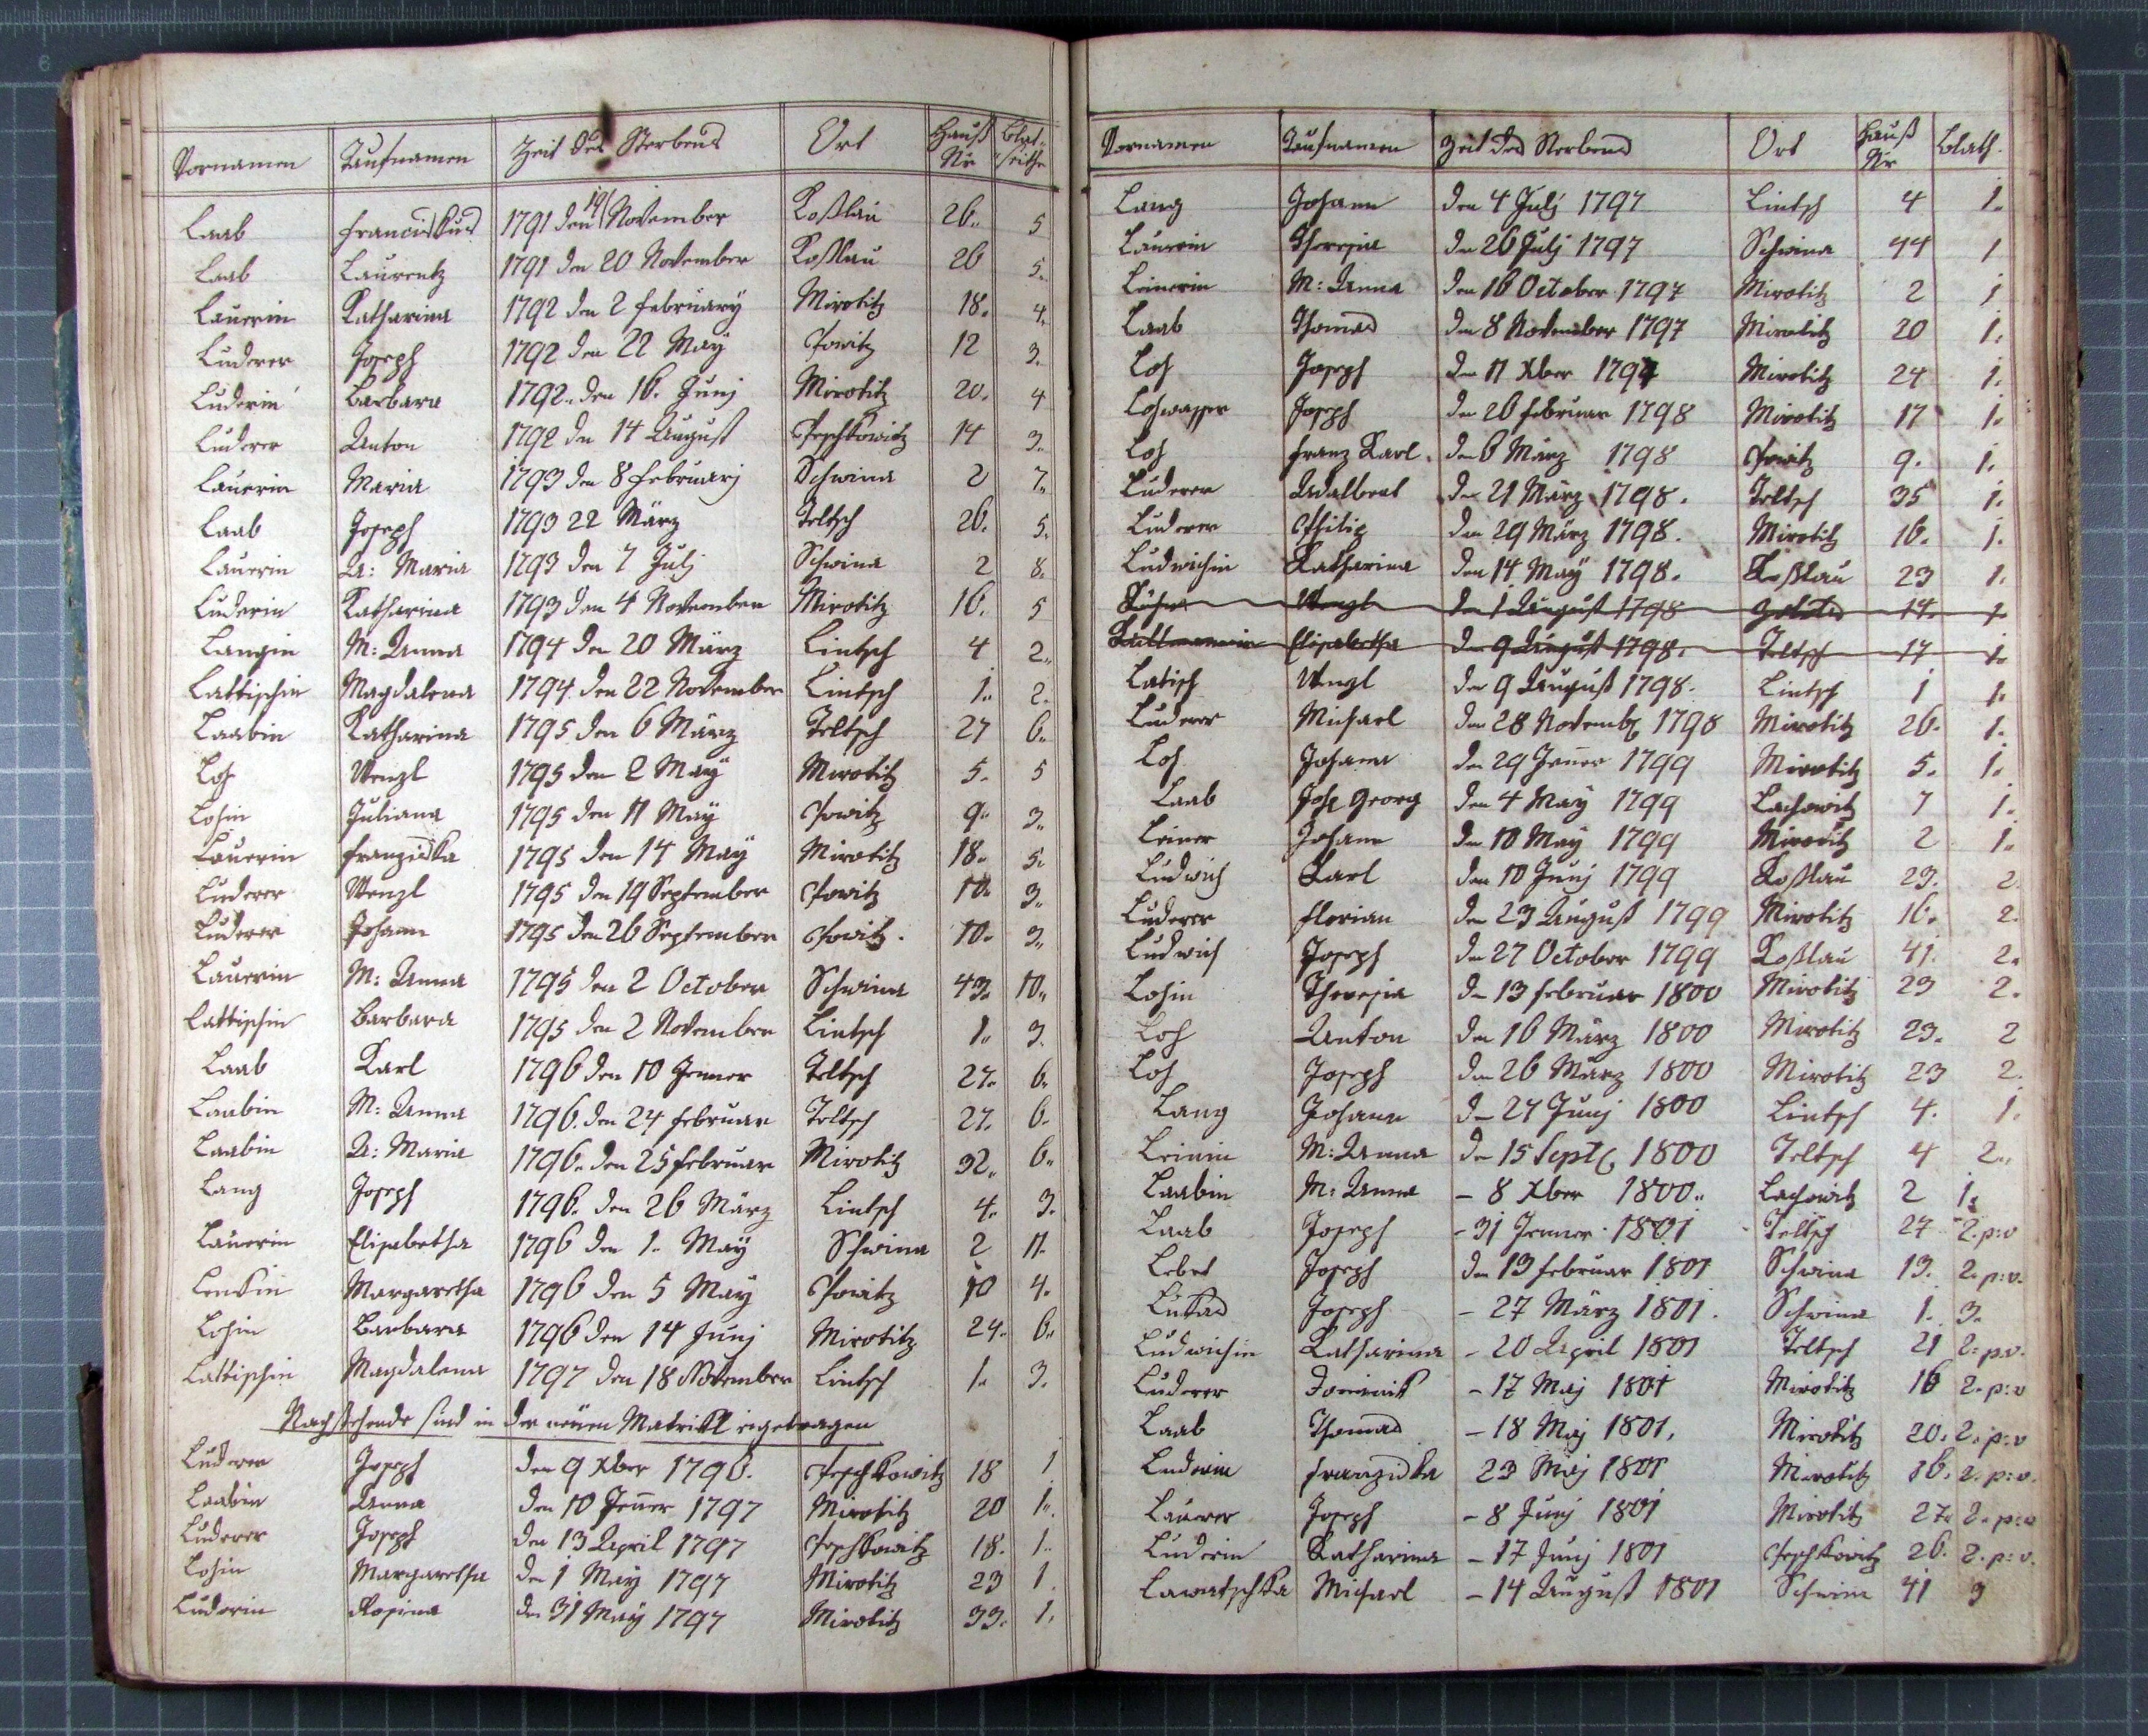 Vornamen Taufnamen Zeit des Sterbens Ort Hauß Nr Blat-seithe
Laab Franciskus 1791 den 19 November Koßlau 26.. 5
Laab Laurentz 1791 den 20 November Koßlau 26 5.
Lauerin Katharina 1792 den 2 februarÿ Mirotitz 18. 4.
Luderer Joseph 1792 den 22 Maÿ Pfowitz 12 3.
Luderin Barbara 1792. den 16. Junj Mirotitz 20. 4
Luderer Anton 1792 den 14 August Peschkowitz 14 3.
Lauerin Maria 1793 den 8 februarj Schwina 2 7..
Laab Joseph 1793 22 März Teltsch 26. 5.
Lauerin A: Maria 1793 den 7 Julj Schwina 2 8.
Luderin Katharina 1793 den 4 November Mirotitz 16. 5
Langin M: Anna 1794 den 20 März Lintsch 4 2..
Lattischin Magdalena 1794 den 22 November Lintsch 1.. 2.
Laabin Katharina 1795 den 6 März Teltsch 27 6..
Loh Wenzl 1795 den 2 Maÿ Mirotitz 5. 5
Lohin Juliana 1795 den 11 Maÿ Pfowitz 9.. 3..
Lauerin Franziska 1795 den 14 Maÿ Mirotitz 18. 5.
Luderer Wenzl 1795 den 19 September Pfowitz 10. 3..
Luderer Johann 1795 den 26 September Pfowitz. 10. 3..
Lauerin M: Anna 1795 den 2 October Schwina 43. 10..
Lattischin Barbara 1795 den 2 November Lintsch 1.. 3.
Laab Karl 1796 den 10 Jenner Teltsch 27. 6.
Laabin M: Anna 1796. den 24 februar Teltsch 27. 6.
Laabin A: Maria 1796. den 25 februar Mirotitz 32.. 6..
Lang Joseph 1796. den 26 März Lintsch 4. 3.
Lauerin Elisabetha 1796 den 1. Maÿ Schwina 2 11.
Lenkin Margaretha 1796 den 5 Maÿ Pfowitz 10 4.
Lohin Barbara 1796 den 14 Junj Mirotitz 24. 6..
Lattischin Magdalena 1797 den 18 November Lintsch 1. 3.
Nachstehende sind in der neuen Matrikl eigetragen
Luderer Joseph den 9 Xber 1796. Peschkowitz 18 1
Laabin Anna den 10 Jener 1797 Mirotitz 20 1..
Luderer Joseph den 13 April 1797 Peschkowitz 18. 1..
Lohin Margaretha den 1 Maÿ 1797 Mirotitz 23 1.
Luderin Rosina den 31 Maÿ 1797 Mirotitz 33. 1.
Vornamen Taufnamen Zeit des Sterbens Ort Hauß Nr Blath.
Lang Johann den 4 Julj 1797 Lintsch 4 1.
Lauerin Theresia den 26 Julj 1797 Schwina 44 1
Leinerin M: Anna den 16 October 1797 Mirotitz 2 1
Laab Thomas den 8 November 1797 Mirotitz 20 1.
Loh Joseph den 11 Xber 1797 Mirotitz 24 1.
Lohwasser Joseph den 26 februar 1798 Mirotitz 17 1.
Loh Franz Karl. den 6 März 1798 Pfowitz 9. 1.
Luderer Adalbert den 21 März 1798. Teltsch 35 1.
Luderer Philip den 29 März 1798. Mirotitz 16. 1.
Ludwichin Katharina den 14 Maÿ 1798. Koßlau 23 1.
Wenzl den 1 August 1798 14. 1.
Elisabetha den 9 August 1798. Teltsch 17 1.
Latisch Wenzl den 9 August 1798. Lintsch 1 1.
Luderer Michael den 28 Novemb 1798 Mirotitz 26. 1.
Loh Johann den 29 Jener 1799 Mirotitz 5. 1.
Laab Joh Georg den 4 Maÿ 1799 Lachowitz 7 1.
Leiner Johann den 10 Maÿ 1799 Mirotitz 2 1..
Ludwich Karl den 10 Junj 1799 Koßlau 23. 2.
Luderer Florian den 23 August 1799 Mirotitz 16. 2.
Ludwich Joseph den 27 October 1799 Koßlau 41. 2.
Lohin Theresia den 13 februar 1800 Mirotitz 23 2.
Loh Anton den 16 März 1800 Mirotitz 23. 2
Loh Joseph den 26 März 1800 Mirotitz 23 2.
Lang Johann den 27 Junj 1800 Lintsch 4. 1.
Leinin M: Anna den 15 Sept 1800 Teltsch 4 2..
Laabin M: Anna - 8 Xber 1800.. Lachowitz 2 1.
Laab Joseph - 31 Jenner 1801 Teltsch 27 2. p:v
Lebet Joseph den 13 februar 1801 Schwina 13. 2. p:v.
Lukas Joseph - 27 März 1801. Schwina 1. 3.
Ludwichin Katharina - 20 April 1801 Teltsch 21 2. p.v.
Luderer Dominik - 17 Maj 1801 Mirotitz 16 2. p:v
Laab Thomas - 18 Maj 1801. Mirotitz 20. 2. p:v
Luderin Franziska 23 Maj 1801 Mirotitz 16. 2. p:v.
Lauerer Joseph - 8 Junj 1801 Mirotitz 27. 2. p:v
Luderin Katharina - 17 Junj 1801 Peschkowitz 26. 2. p:v.
Lawatschka Michael - 14 August 1801 Schwina 41 3